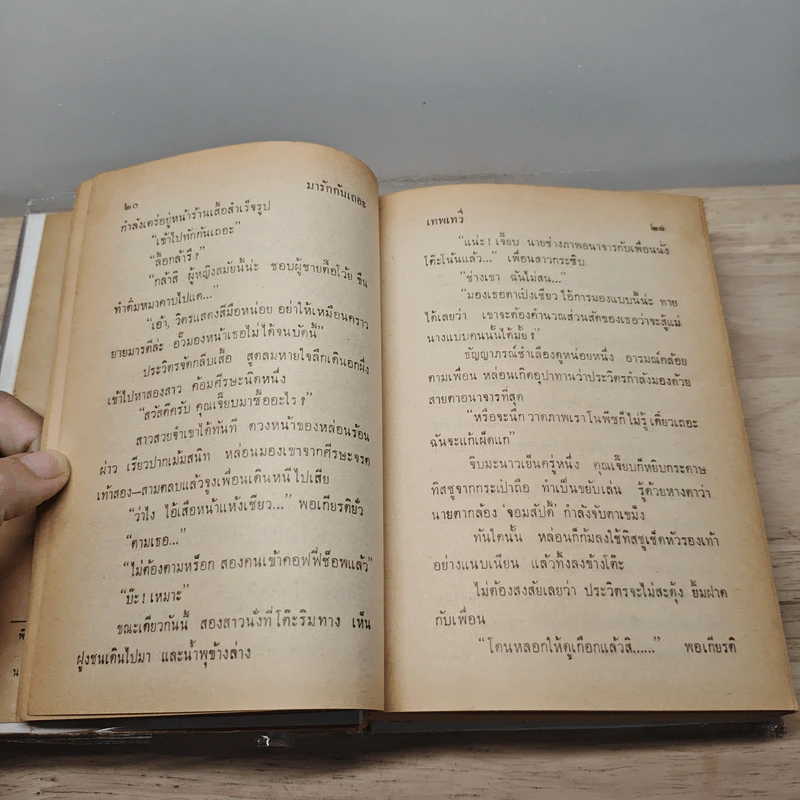 ๒๐
มารักกันเถอะ
กำลังเตร่อยู่หน้าร้านเสื้อสำเร็จรูป
“เข้าไปทักกันเถอะ”
“ล้อกล้ารึ ?”
“กล้าสิ ผู้หญิงสมัยนี้น่ะ ชอบผู้ชายตื๊อโว้ย ขืน
ทำติ๋มหมาคาบไปแด...”
“เอ้า, วิตรแสดงฝีมือหน่อย อย่าให้เหมือนคราว
ยายมารตีล่ะ อั๊วมองหน้าเธอไม่ได้จนบัดนี้”
ประวิตรจัดกลีบเสื้อ สูดลมหายใจลึกเดินอกผึ่ง
เข้าไปหาสองสาว ค้อมศีรษะนิดหนึ่ง
“สวัสดีครับ คุณเจี๊ยบมาซื้ออะไร ?”
สาวสวยจำเขาได้ทันที ดวงหน้าของหล่อนร้อน
ผ่าว เรียวปากเม้มสนิท หล่อนมองเขาจากศีรษะจรด
เท้าสอง—สามตลบแล้วจูงเพื่อนเดินหนีไปเสีย
“ว่าไง ไอ้เสือหน้าแห้งเชียว...” พอเกียรติยั่ว
“ตามเธอ...”
“ไม่ต้องตามหรือก สองคนเข้าคอฟฟี่ช็อพแล้ว”
“บ๊ะ ! เหมาะ”
ขณะเดียวกันนี้ สองสาวนั่งที่โต๊ะริมทาง เห็น
ฝูงชนเดินไปมา และน้ำพุข้างล่าง
เทพเทวี
๒๑
“แน่ะ ! เจี๊ยบ นายช่างภาพอนาจารกับเพื่อนนั่ง
โต๊ะโน้นแล้ว...” เพื่อนสาวกระซิบ
“ช่างเขา ฉันไม่สน...”
“มองเธอตาเป๋งเชียว ไอ้การมองแบบนี้น่ะ ทาย
ได้เลยว่า เขาจะต้องคำนวณส่วนสัดของเธอว่าจะสู้แม่
นางแบบคนนั้นได้มั้ย ?”
ธัญญาภรณ์ชำเลืองดูหน่อยหนึ่ง อารมณ์คล้อย
ตามเพื่อน หล่อนเกิดอุปาทานว่าประวิตรกำลังมองด้วย
สายตาอนาจารที่สุด
“หรือจะนึกวาดภาพเราโนพีซก็ไม่รู้ เดี๋ยวเถอะ
ฉันจะแก้เผ็ดแก”
จิบมะนาวเย็นครู่หนึ่ง คุณเจี๊ยบก็หยิบกระดาษ
ทิสชูจากกระเป๋าถือ ทำเป็นขยับเล่น รู้ด้วยหางตาว่า
นายตากล้อง ‘จอมสัปดี้’ กำลังจับตาเขม็ง
ทันใดนั้น หล่อนก็ก้มลงใช้ทิสชูเช็ดหัวรองเท้า
อย่างแนบเนียน แล้วทิ้งลงข้างโต๊ะ
ไม่ต้องสงสัยเลยว่า ประวิตรจะไม่สะดุ้ง ยิ้มฝาด
กับเพื่อน
“โดนหลอกให้ดูเกือกแล้วสิ......” พอเกียรติ